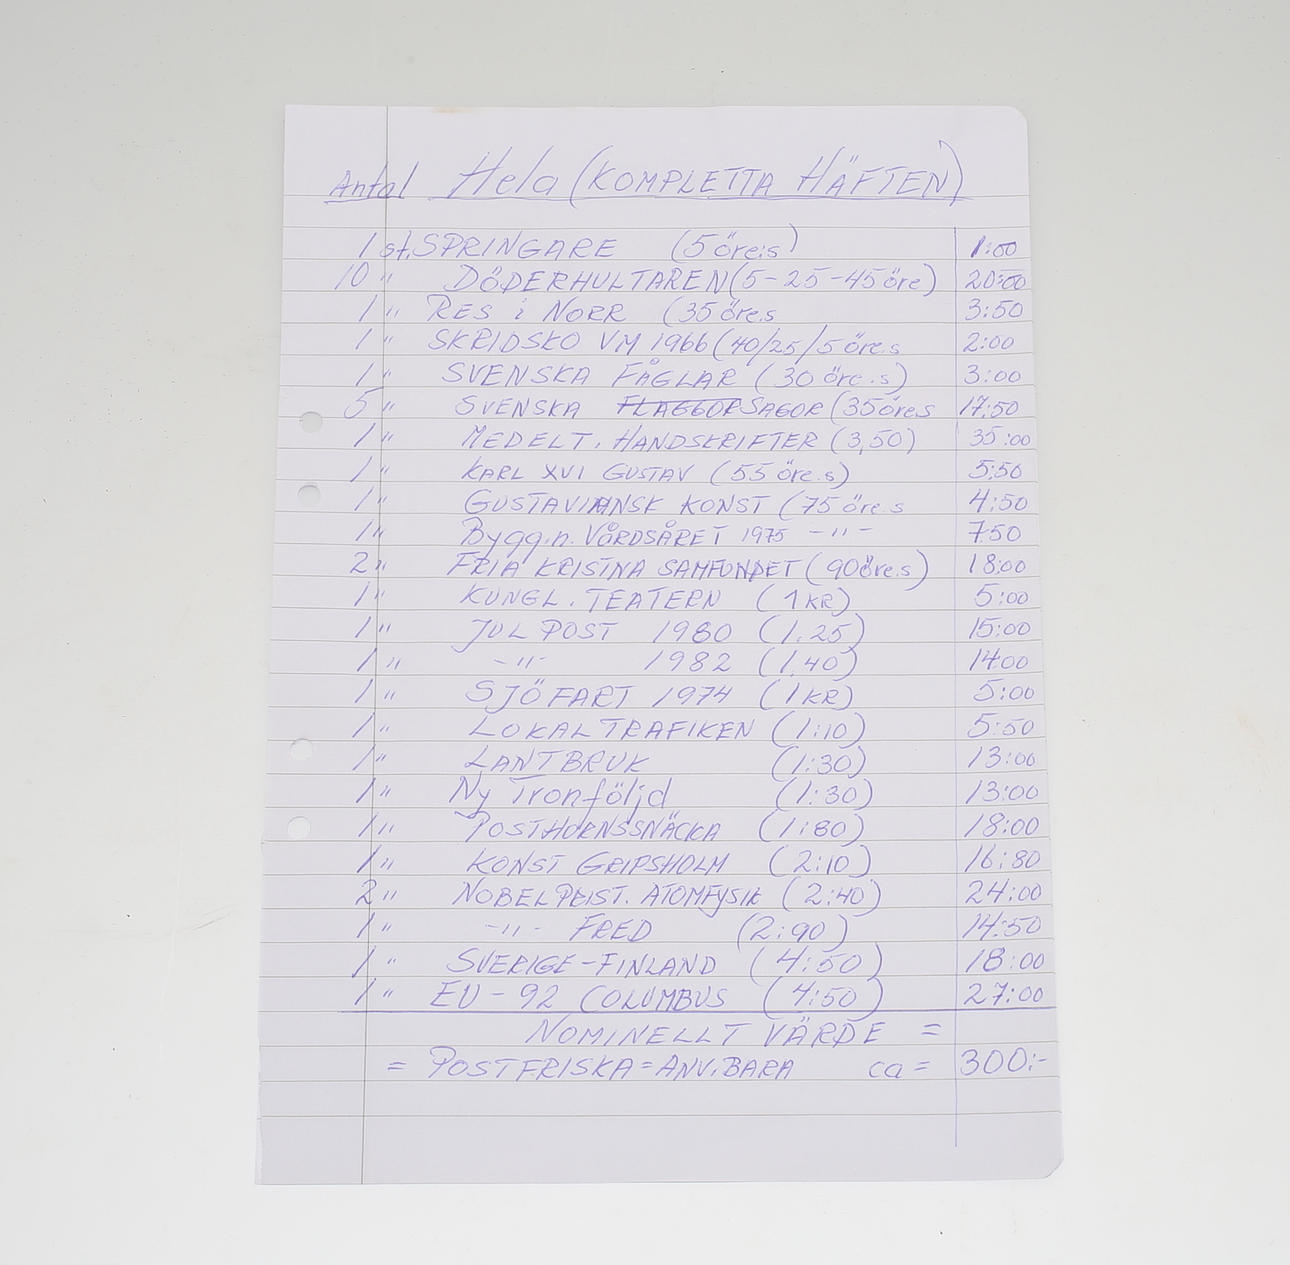 Antal Hela (KOMPLETTA HÄFTEN)
1 st. SPRINGARE (5 öre:s) 1:00
10 " DÖDERHULTAREN (5-25-45 öre) 20:00
1 " RES i NORR (35 öre.s 3:50
1 " SKRIDSKO VM 1966 (40/25/5 öre.s 2:00
1 " SVENSKA FÅGLAR (30 öre.s) 3:00
5 " SVENSKA SAGOR (35 öre.s 17:50
1 " MEDELT. HANDSKRIFTER (3,50) 35:00
1 " KARL XVI GUSTAV (55 öre.s) 5:50
1 " GUSTAVIANSK KONST (75 öre.s 4:50
1 " Bygg.n. VÅRDSÅRET 1975 -"- 7.50
2 " FRIA KRISTNA SAMFUNDET (90 öre.s) 18:00
1 " KUNGL. TEATERN (1 KR) 5:00
1 " JULPOST 1980 (1.25) 15:00
1 " -"- 1982 (1.40) 14:00
1 " SJÖFART 1974 (1 KR) 5:00
1 " LOKALTRAFIKEN (1:10) 5:50
1 " LANTBRUK (1:30) 13:00
1 " Ny Tronföljd (1:30) 13:00
1 " POSTHORNSSNÄCKA (1:80) 18:00
1 " KONST GRIPSHOLM (2:10) 16:80
2 " NOBELPRIST. ATOMFYSIK (2:40) 24:00
1 " -"- FRED (2:90) 14:50
1 " SVERIGE-FINLAND (4:50) 18:00
1 " EU-92 COLUMBUS (4:50) 27:00
NOMINELLT VÄRDE =
= POSTFRISKA = ANV.BARA ca = 300:-